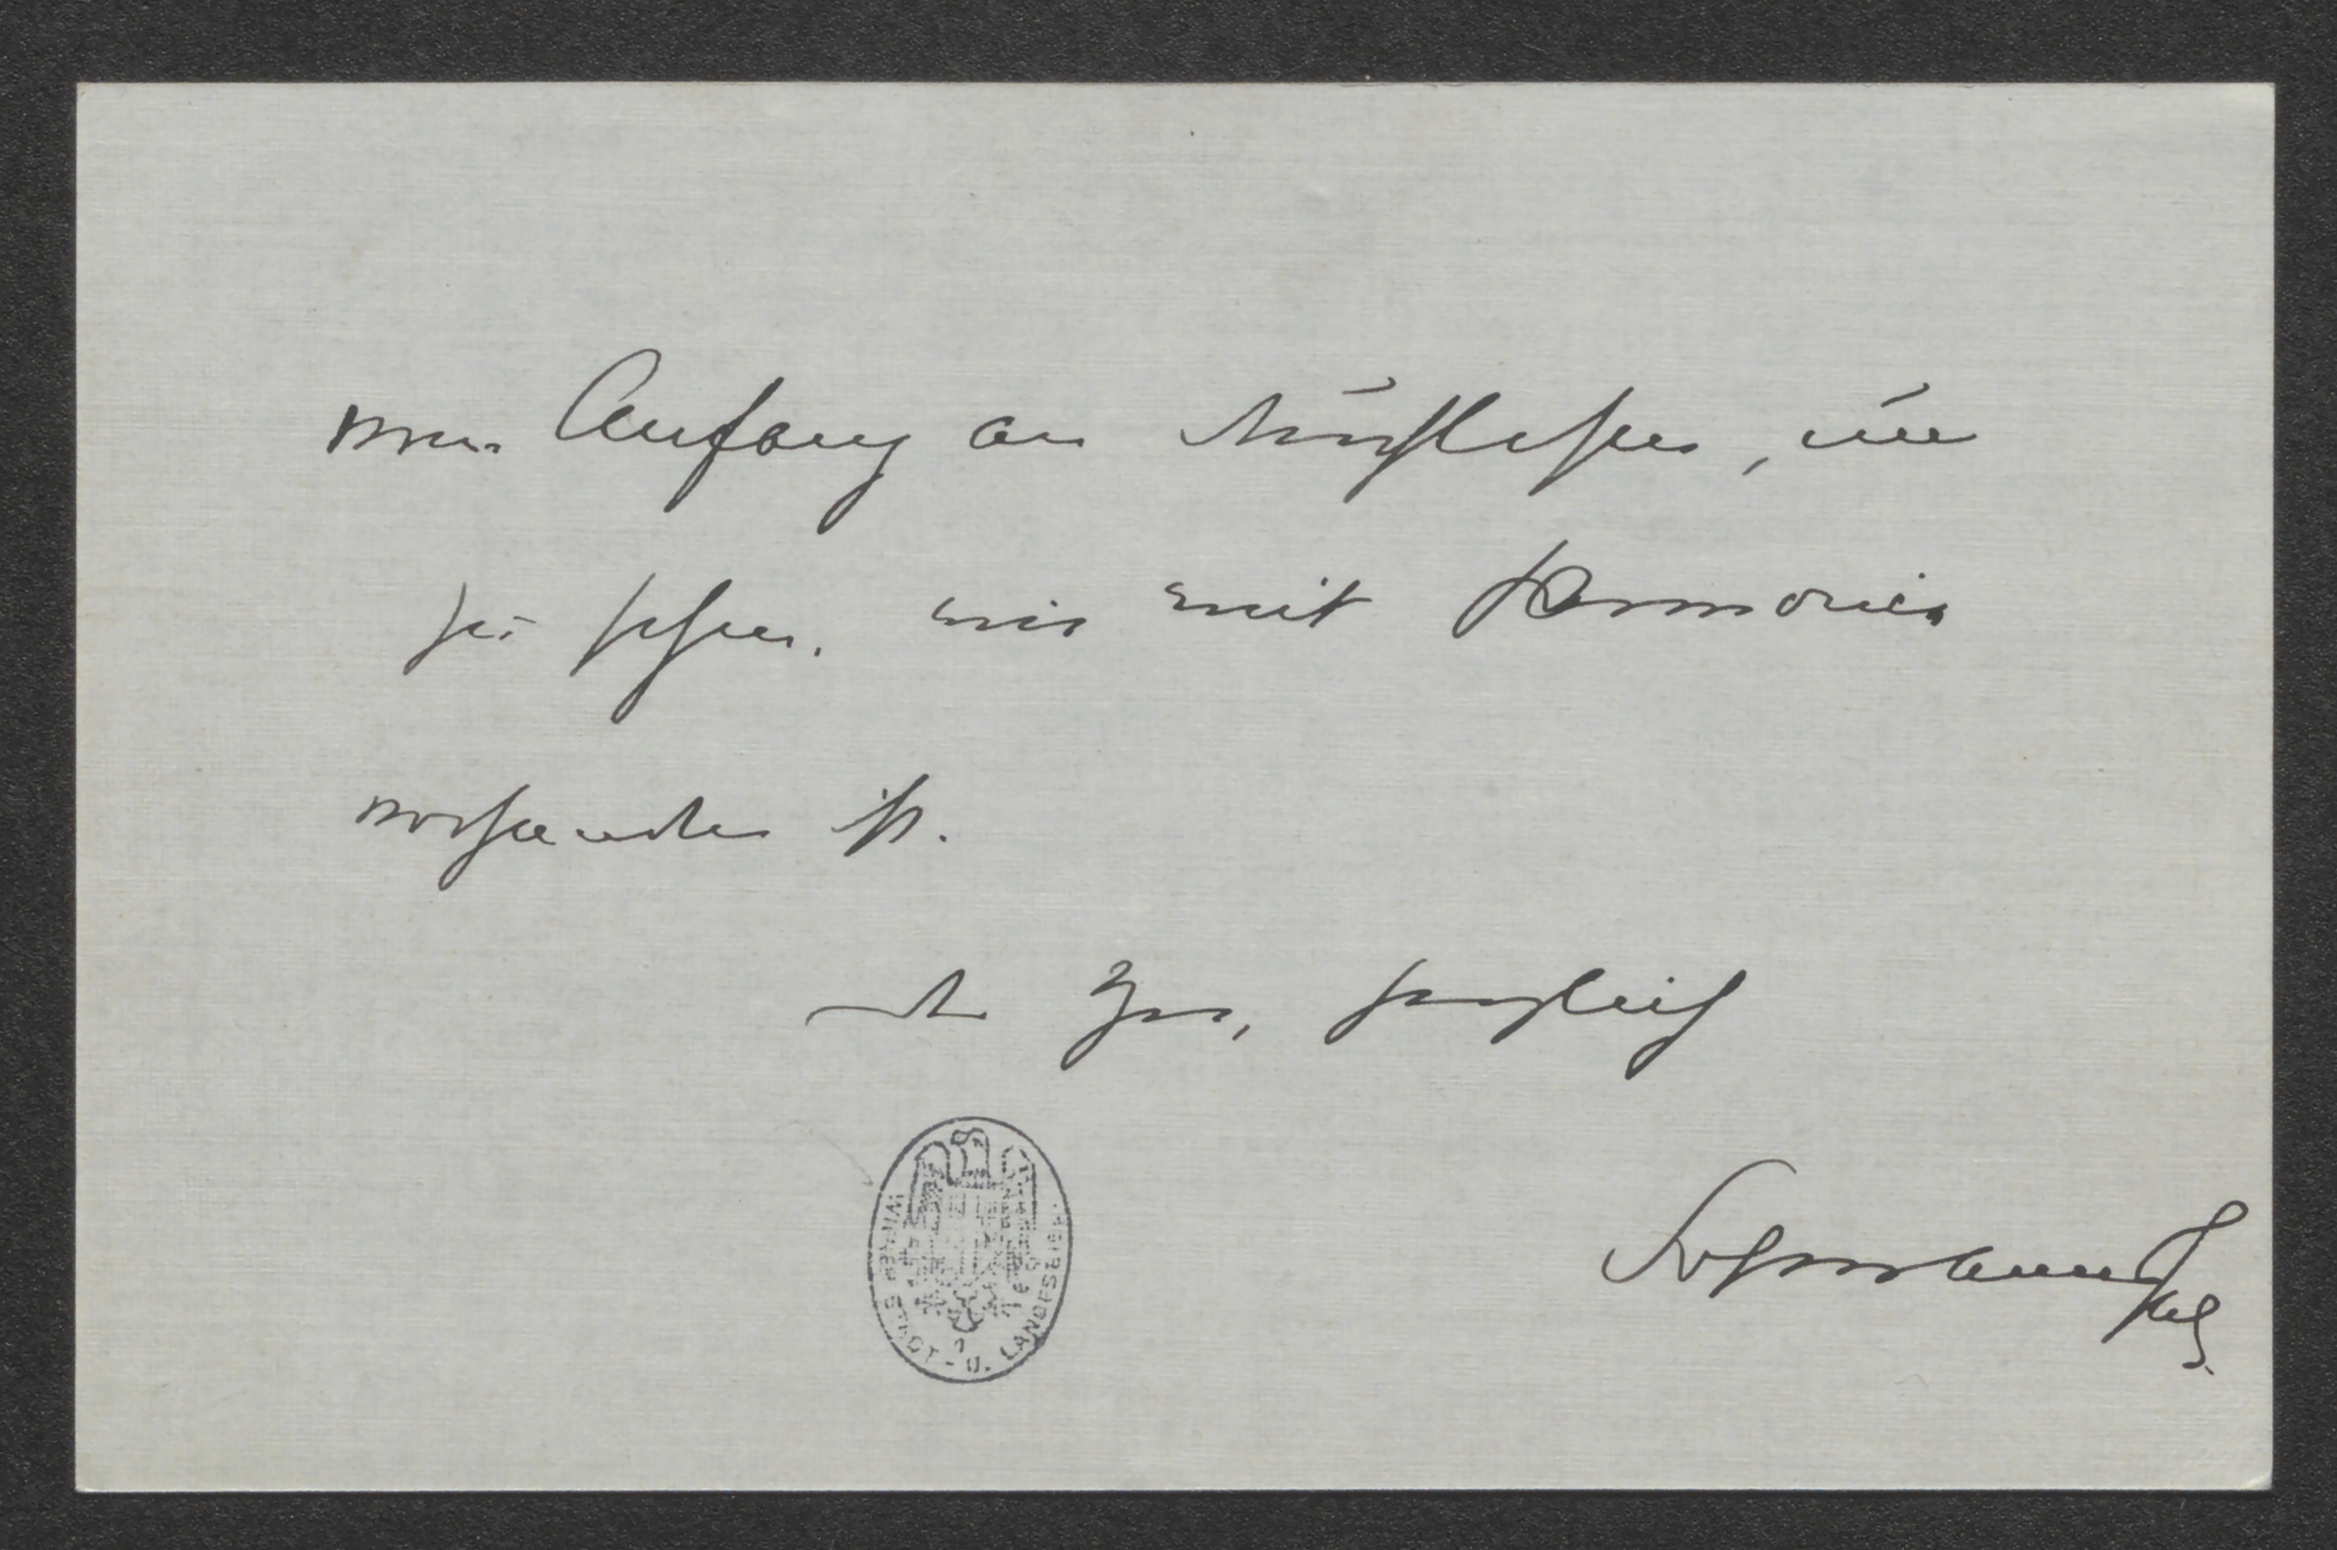 vom Anfang an durchlesen, um
zu sehen, wie mit Harmonien
vorhanden ist.
Ihr herzlich
WIENER STADT - U. LANDESBIBL.